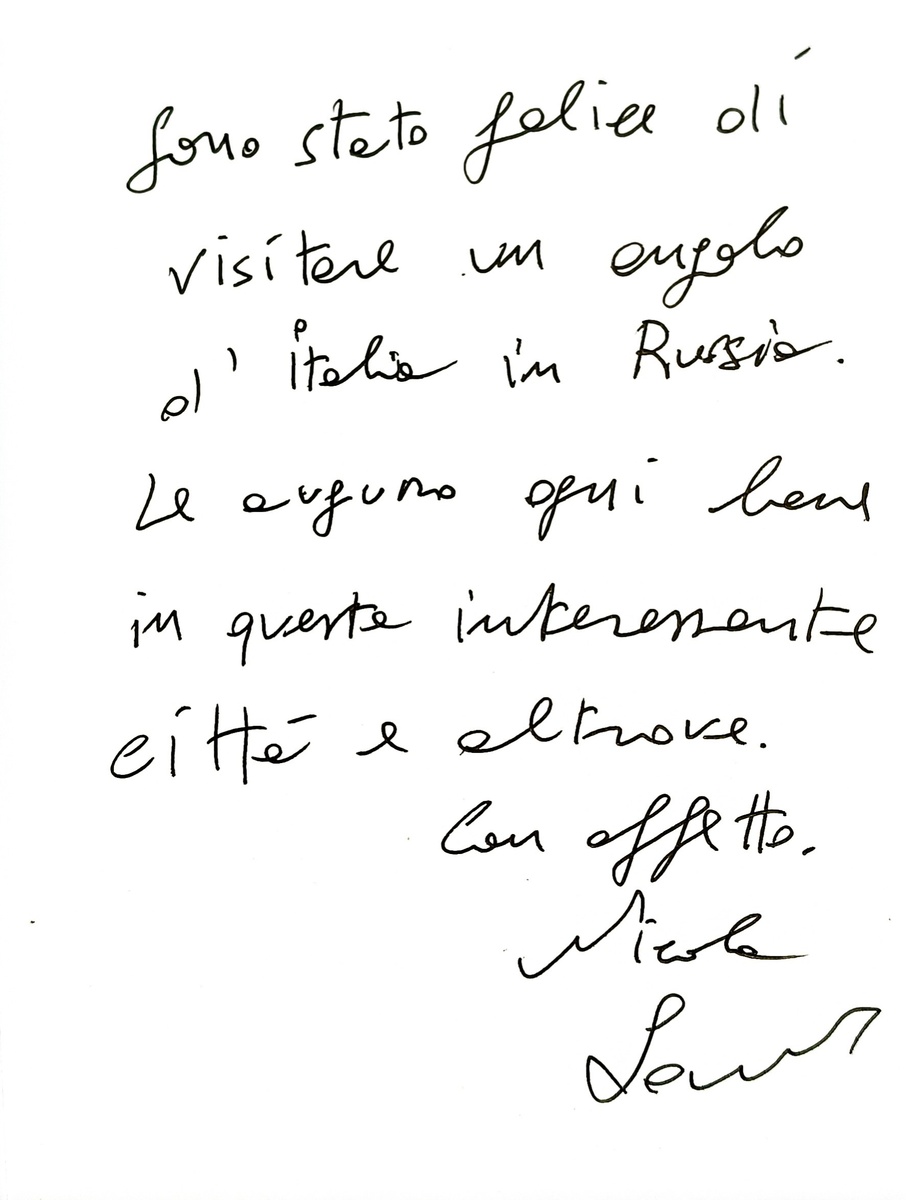 Sono stato felice di
visitare un angolo
d'Italia in Russia.
Le auguro ogni bene
in queste interessante
città e altrove.
Con affetto.
Nicola